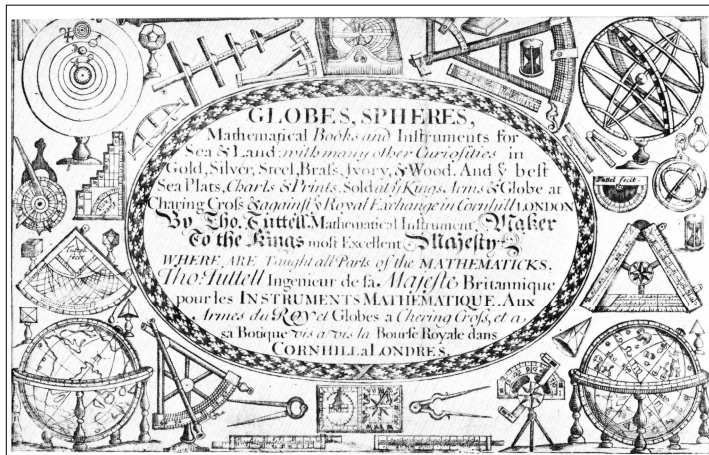 GLOBES, SPHERES,
Mathematical Books and Instruments for
Sea & Land with many other Curiosities in
Gold, Silver, Steel, Brass, Ivory, & Wood. And ye best
Sea Plats, Charts & Prints. Sold at ye Kings Arms & Globe at
Charing Cross & against ye Royal Exchange in Cornhill LONDON
By Tho. Tuttell. Mathematical Instrument Maker
To the Kings most Excellent Majesty
WHERE ARE Taught all Parts of the MATHEMATICKS.
Tho. Tuttell Ingenieur de sa Majeste Britannique
pour les INSTRUMENTS MATHEMATIQUE. Aux
Armes du ROY et Globes a Chering Cross, et a
sa Botique vis a vis la Bourse Royale dans
CORNHILL a LONDRES.
Tuttell fecit
Tuttell fecit